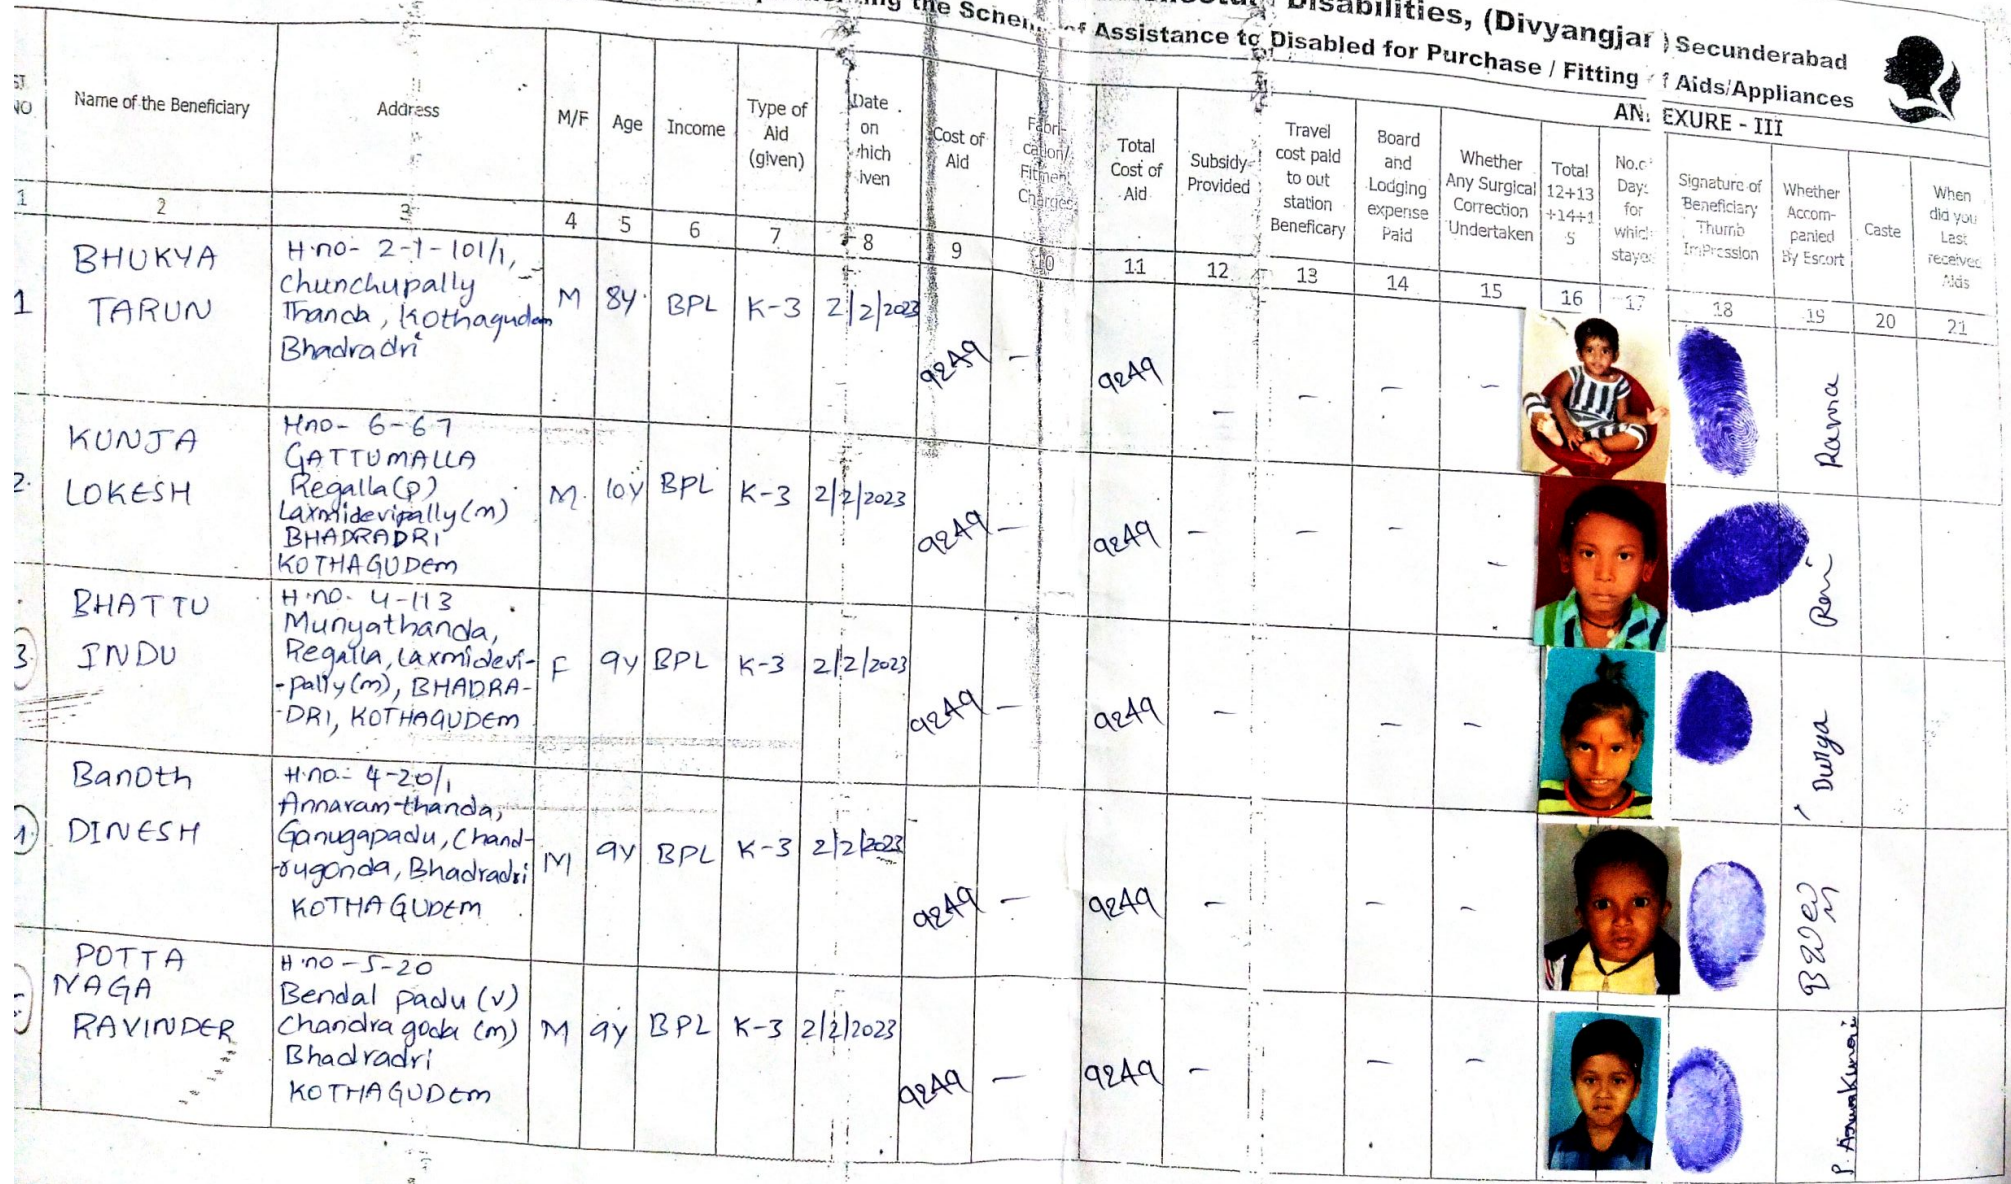 the Scheme of Assistance to Disabled for Purchase / Fitting of Aids/Appliances
Disabilities, (Divyangjan) Secunderabad
ANNEXURE - III
NO
Name of the Beneficiary
Address
M/F
Age
Income
Type of Aid (given)
Date on which iven
Cost of Aid
Fabri-cation/ Fitment Charges
Total Cost of Aid
Subsidy Provided
Travel cost paid to out station Beneficary
Board and Lodging expense Paid
Whether Any Surgical Correction Undertaken
Total 12+13 +14+1 5
No.of Days for which stayed
Signature of Beneficiary Thumb ImPression
Whether Accom-panied By Escort
Caste
When did you Last received Aids
1 2 3 4 5 6 7 8 9 10 11 12 13 14 15 16 17 18 19 20 21
1 BHUKYA TARUN
H.no- 2-1-101/1,
Chunchupally
Thanda, Kothagudem
Bhadradri
M 8y BPL K-3 2/2/2023 9249 - 9249 - - - - Rama
2. KUNJA LOKESH
Hno- 6-67
GATTUMALLA
Regalla(p)
Laxmidevipally(m)
BHADRADRI
KOTHAGUDEM
M. 10y BPL K-3 2/2/2023 9249 - 9249 - - - -
3 BHATTU INDU
H.no- 4-113
Munyathanda,
Regalla, Laxmidevi-
-pally(m), BHADRA-
-DRI, KOTHAGUDEM
F 9y BPL K-3 2/2/2023 9249 - 9249 - - - Durga
Banoth DINESH
H.no:- 4-20/1
Annaram-thanda,
Ganugapadu, Chand-
-rugonda, Bhadradri
KOTHAGUDEM
M 9y BPL K-3 2/2/2023 9249 - 9249 - - -
POTTA NAGA RAVINDER
H.no-5-20
Bendal padu (v)
Chandra goda (m)
Bhadradri
KOTHAGUDEM
M 9y BPL K-3 2/2/2023 9249 - 9249 - - -